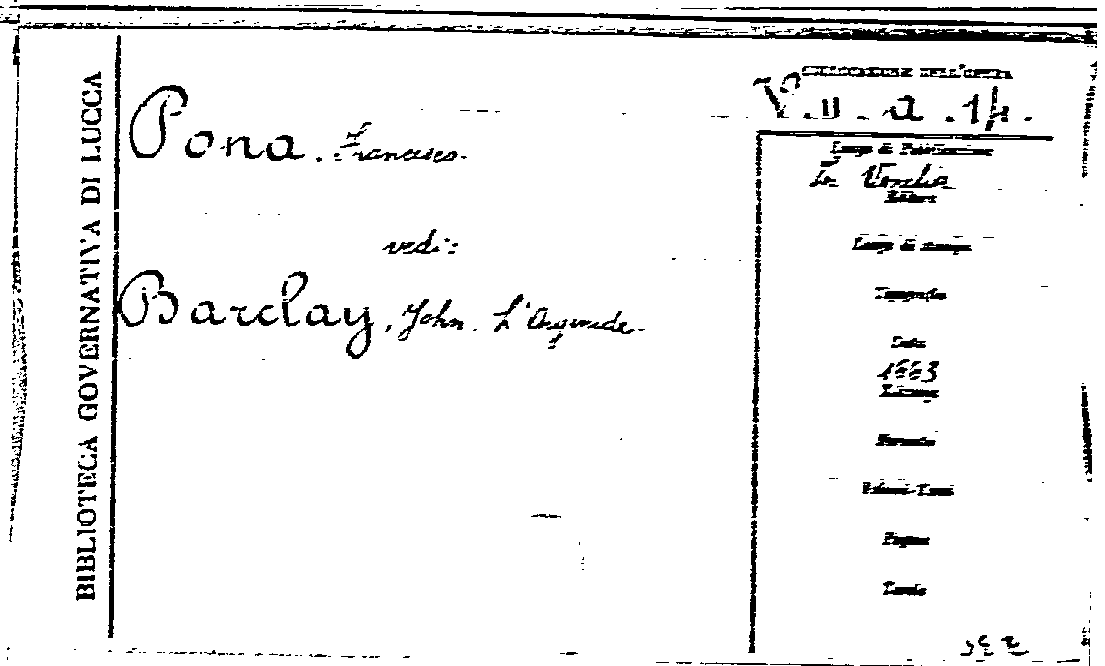 BIBLIOTECA GOVERNATIVA DI LUCCA
Pona. Francesco.
vedi:
Barclay, John. L'Argenide.
COLLOCAZIONE DELL'OPERA
Luogo di Pubblicazione
In Venezia
Editore
Luogo di stampa
Tipografo
Data
1663
Edizione
Formato
Volumi-Tomi
Pagine
Tavole